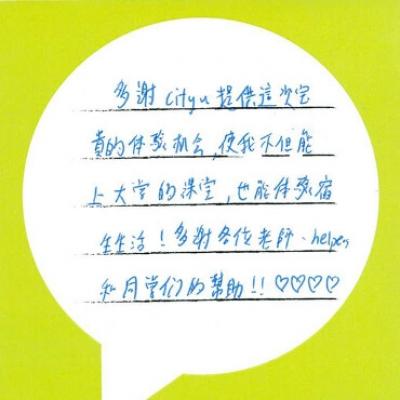 多謝 cityu 提供這次宝
貴的体驗机会,使我不但能
上大学的課堂,也能体驗宿
生生活！多謝各位老師、helper
和同学们的幫助!! ♡♡♡♡